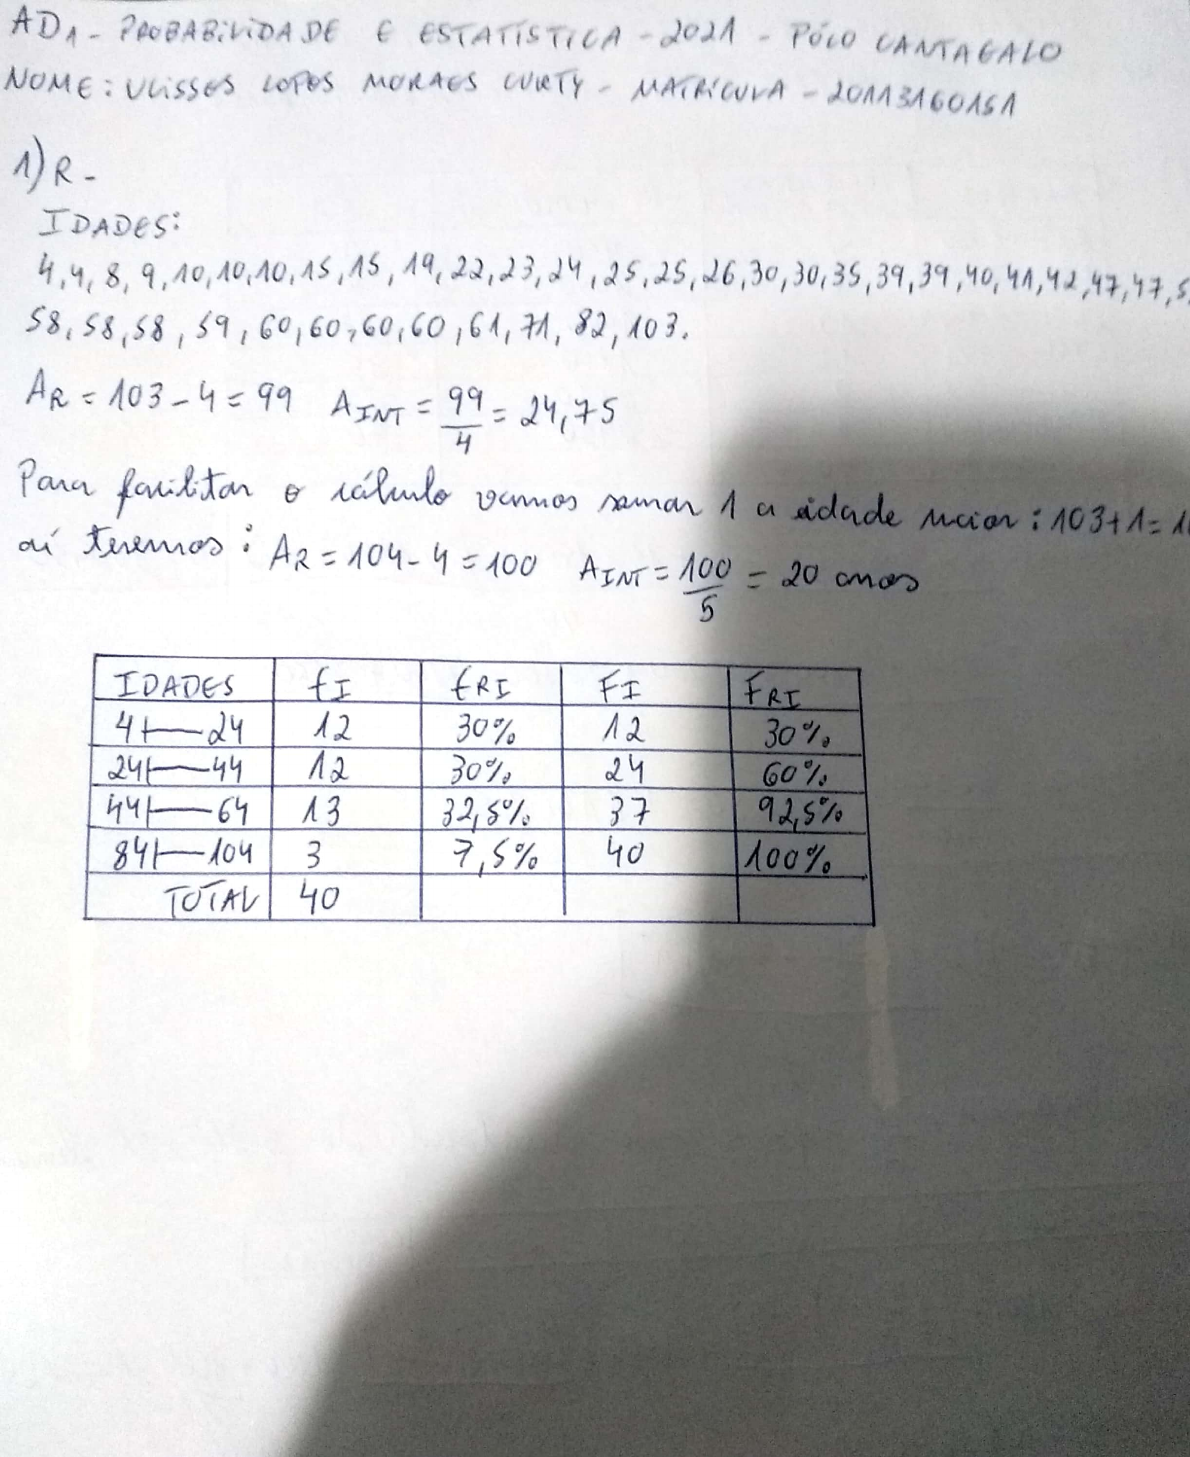 AD1 - PROBABILIDADE E ESTATÍSTICA - 2021 - PÓLO CANTAGALO
NOME: ULISSES LOPES MORAES CURTY - MATRÍCULA - 20113160151
1) R -
IDADES:
4, 4, 8, 9, 10, 10, 10, 15, 15, 19, 22, 23, 24, 25, 25, 26, 30, 30, 35, 39, 39, 40, 41, 42, 47, 47, 5
58, 58, 58, 59, 60, 60, 60, 60, 61, 71, 82, 103.
AR = 103 - 4 = 99 AINT = 99/4 = 24,75
Para facilitar o cálculo vamos somar 1 a idade maior: 103 + 1 = 1
aí teremos: AR = 104 - 4 = 100 AINT = 100/5 = 20 anos
IDADES fI fRI FI FRI
4 |— 24 12 30% 12 30%
24 |— 44 12 30% 24 60%
44 |— 64 13 32,5% 37 92,5%
84 |— 104 3 7,5% 40 100%
TOTAL 40